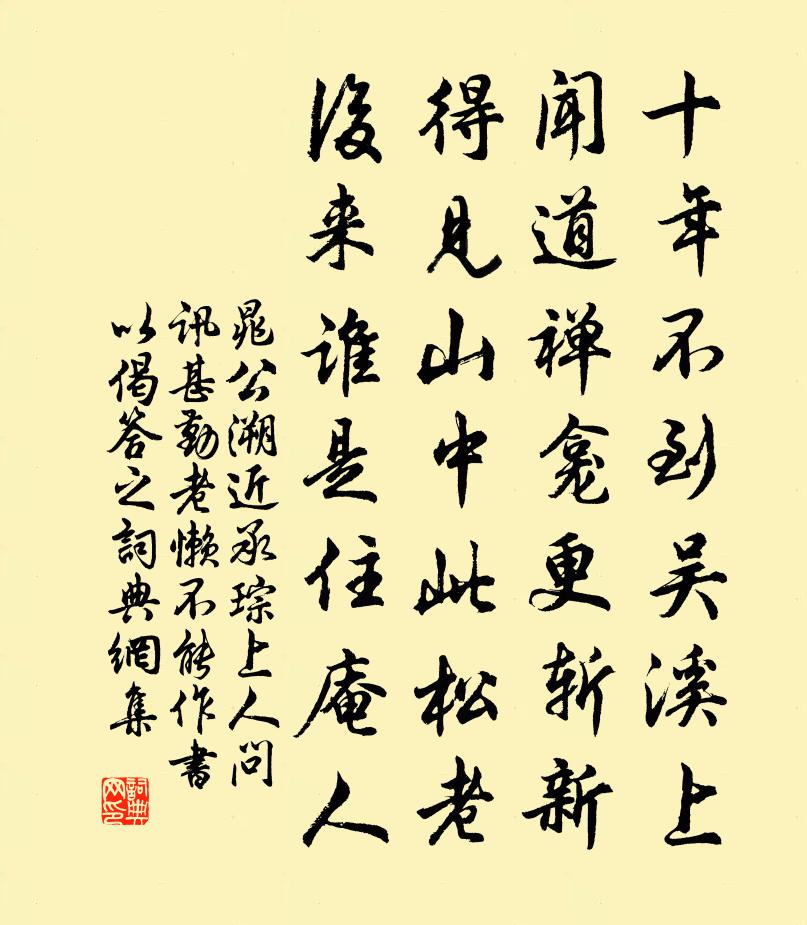 十年不到吴溪上
闻道禅龛更斩新
得见山中此松老
后来谁是住庵人
晁公溯近承琮上人问
讯甚勤老懒不能作书
以偈答之詞典網集
詞典
网印